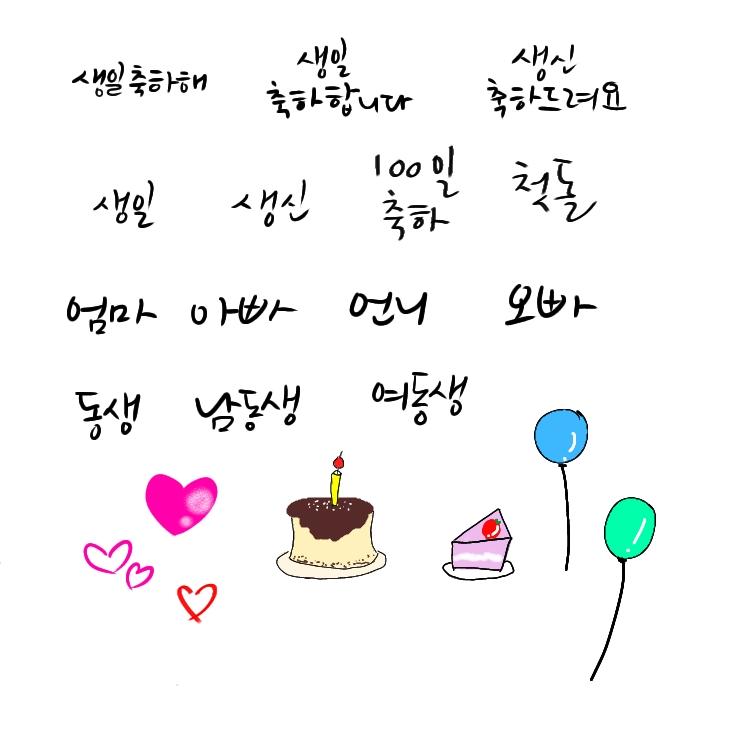 생일축하해
생일
축하합니다
생신
축하드려요
생일
생신
100일
축하
첫돌
엄마
아빠
언니
오빠
동생
남동생
여동생